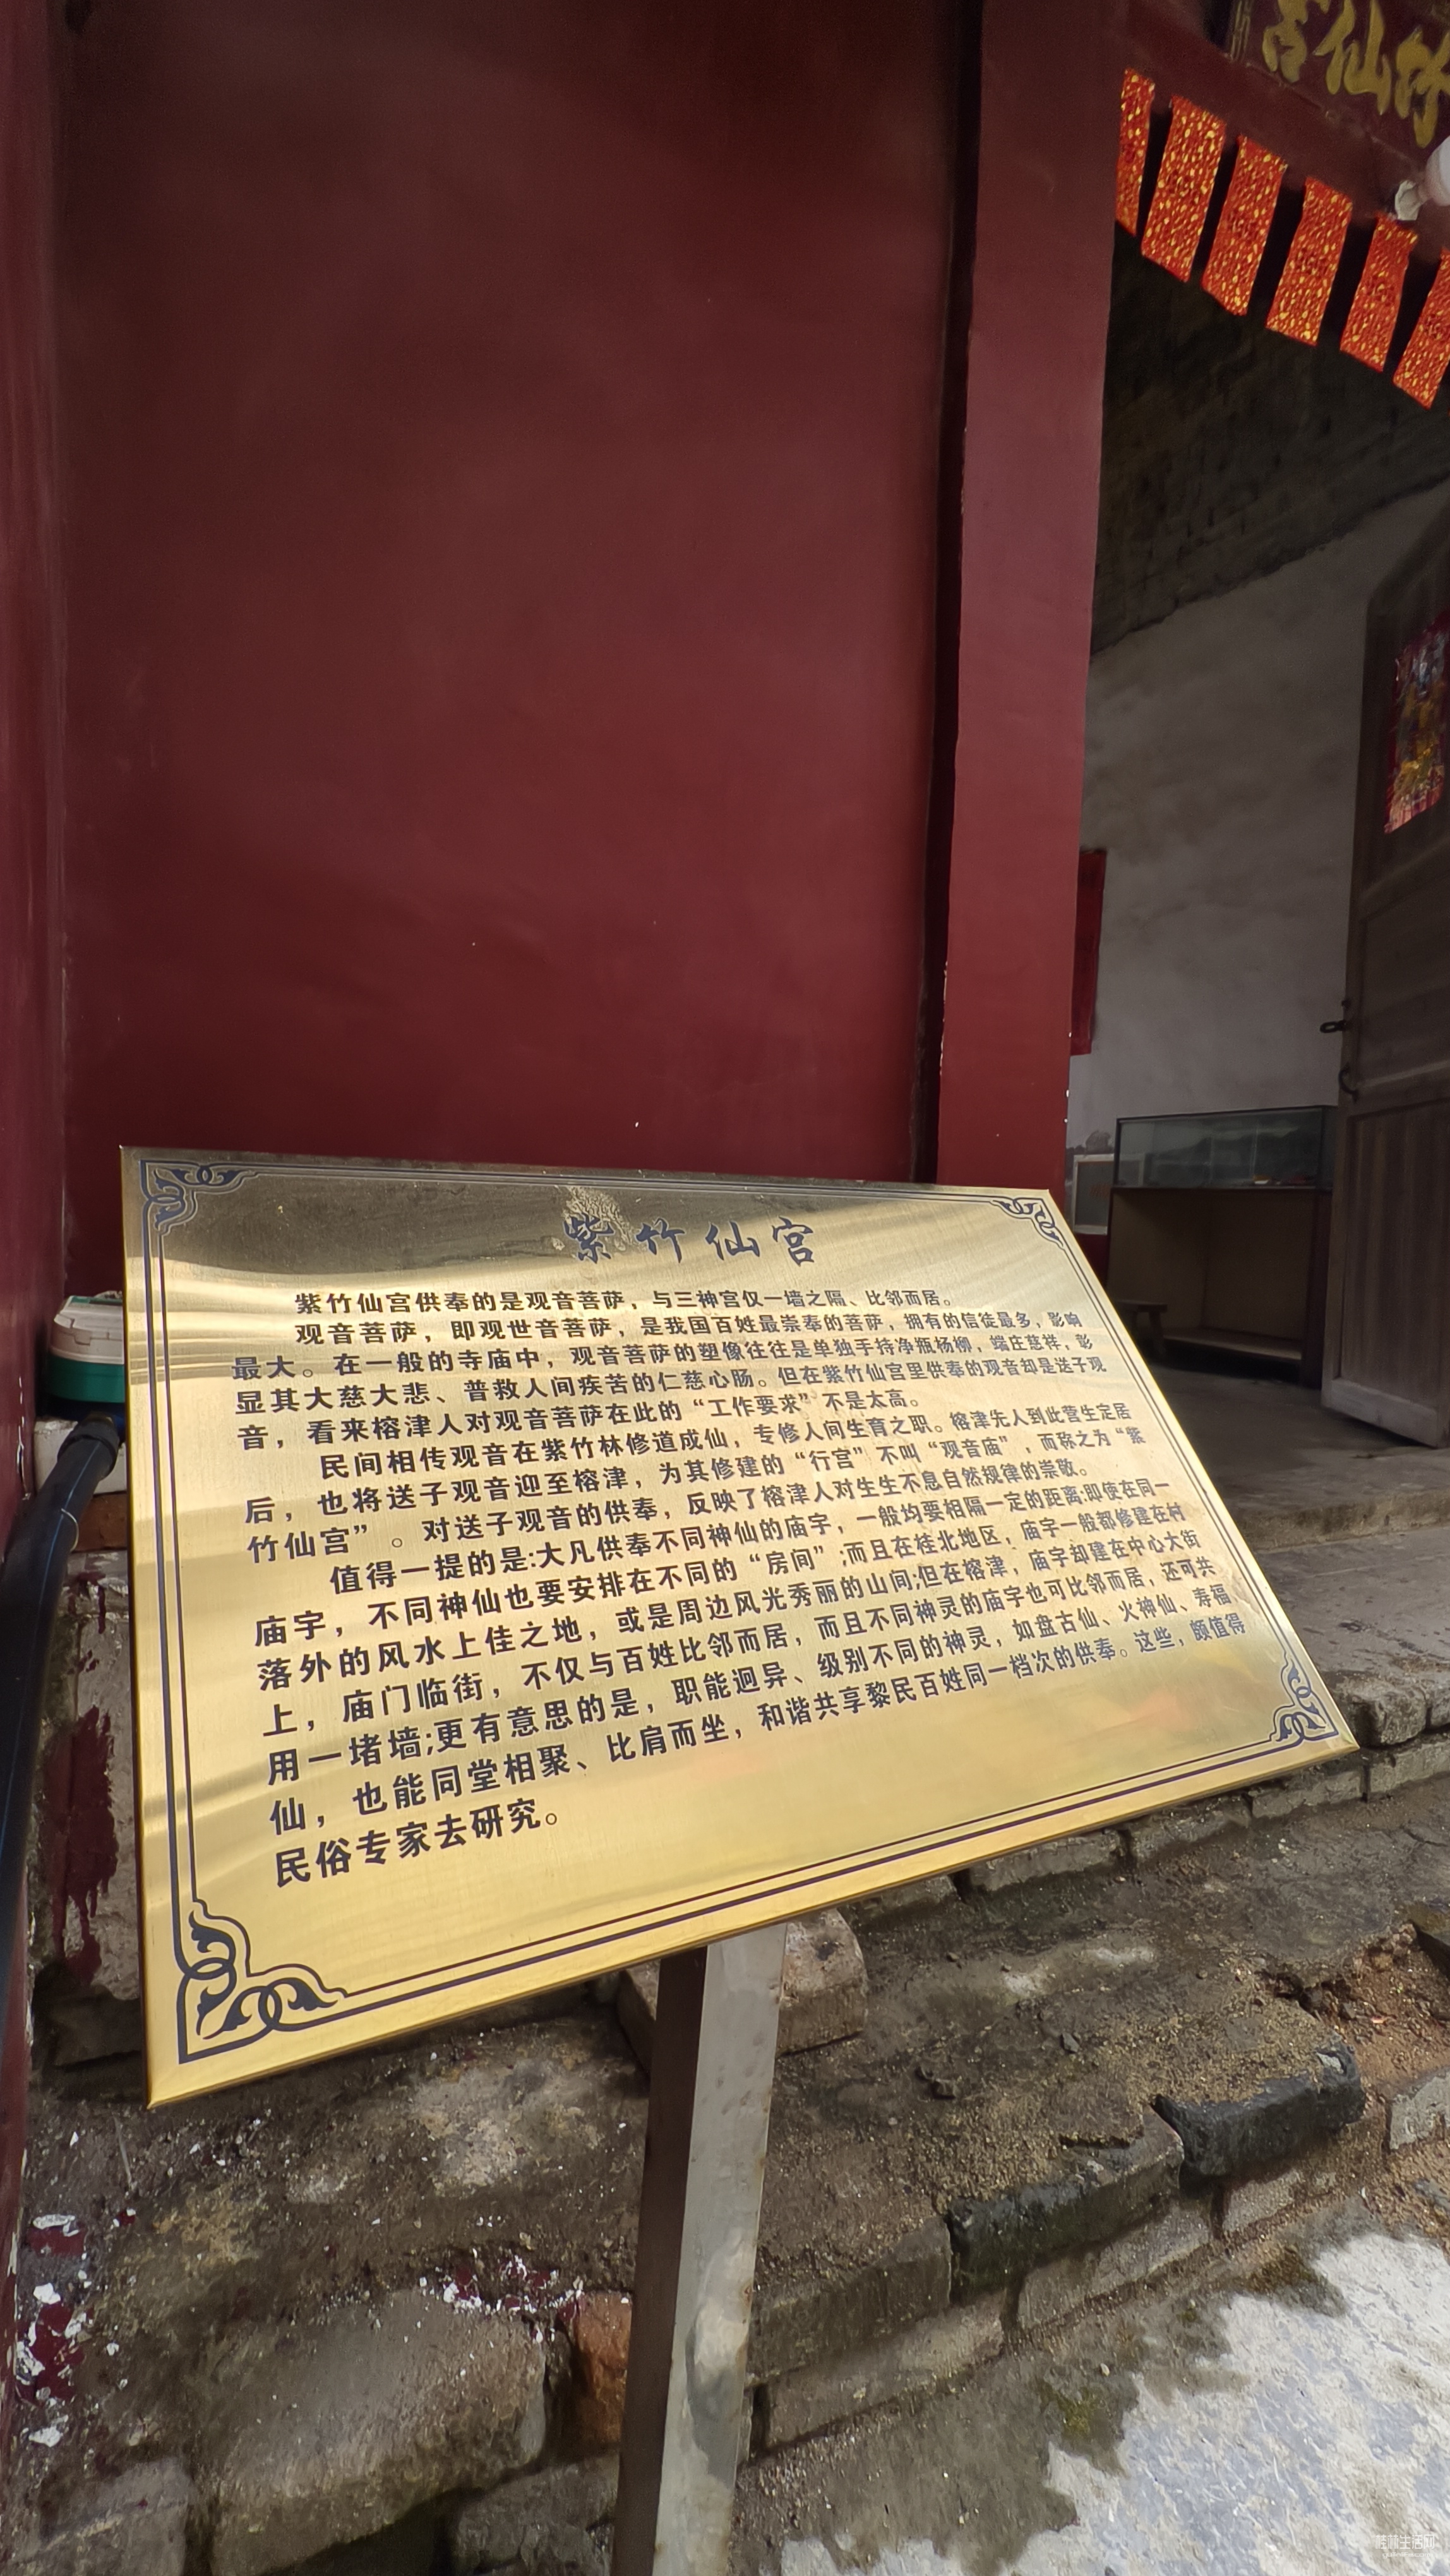 竹仙宫
紫竹仙宫
紫竹仙宫供奉的是观音菩萨，与三神宫仅一墙之隔、比邻而居。
观音菩萨，即观世音菩萨，是我国百姓最崇奉的菩萨，拥有的信徒最多，影响
最大。在一般的寺庙中，观音菩萨的塑像往往是单独手持净瓶杨柳，端庄慈祥，彰
显其大慈大悲、普救人间疾苦的仁慈心肠。但在紫竹仙宫里供奉的观音却是送子观
音，看来榕津人对观音菩萨在此的“工作要求”不是太高。
民间相传观音在紫竹林修道成仙，专修人间生育之职。榕津先人到此营生定居
后，也将送子观音迎至榕津，为其修建的“行宫”不叫“观音庙”，而称之为“紫
竹仙宫”。对送子观音的供奉，反映了榕津人对生生不息自然规律的崇敬。
值得一提的是:大凡供奉不同神仙的庙宇，一般均要相隔一定的距离;即使在同一
庙宇，不同神仙也要安排在不同的“房间”;而且在桂北地区，庙宇一般都修建在村
落外的风水上佳之地，或是周边风光秀丽的山间;但在榕津，庙宇却建在中心大街
上，庙门临街，不仅与百姓比邻而居，而且不同神灵的庙宇也可比邻而居，还可共
用一堵墙;更有意思的是，职能迥异、级别不同的神灵，如盘古仙、火神仙、寿福
仙，也能同堂相聚、比肩而坐，和谐共享黎民百姓同一档次的供奉。这些，颇值得
民俗专家去研究。
桂林生活网